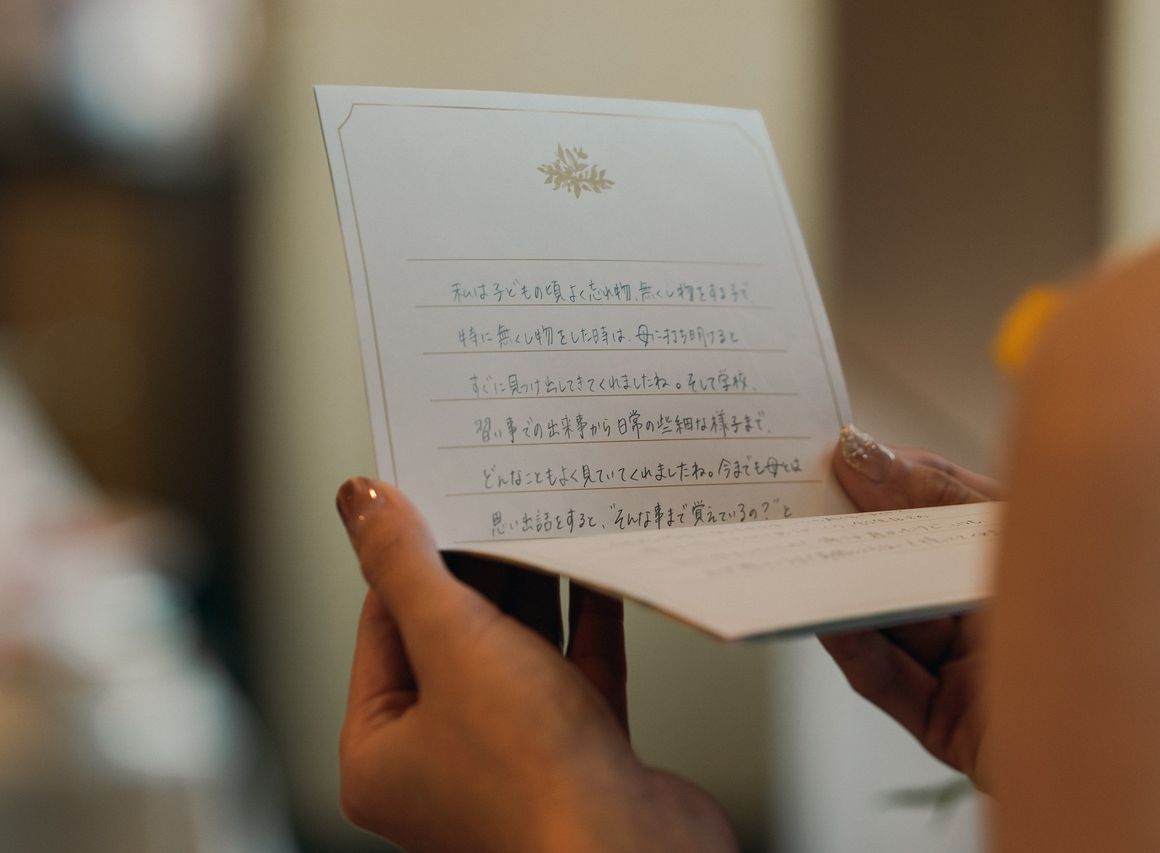 私は子どもの頃よく忘れ物、無くし物をする子で
特に無くし物をした時は、母に打ち明けると
すぐに見つけ出してきてくれましたね。そして学校、
習い事での出来事から日常の些細な様子まで、
どんなこともよく見ていてくれましたね。今までも母とは
思い出話をすると、"そんな事まで覚えているの？"と